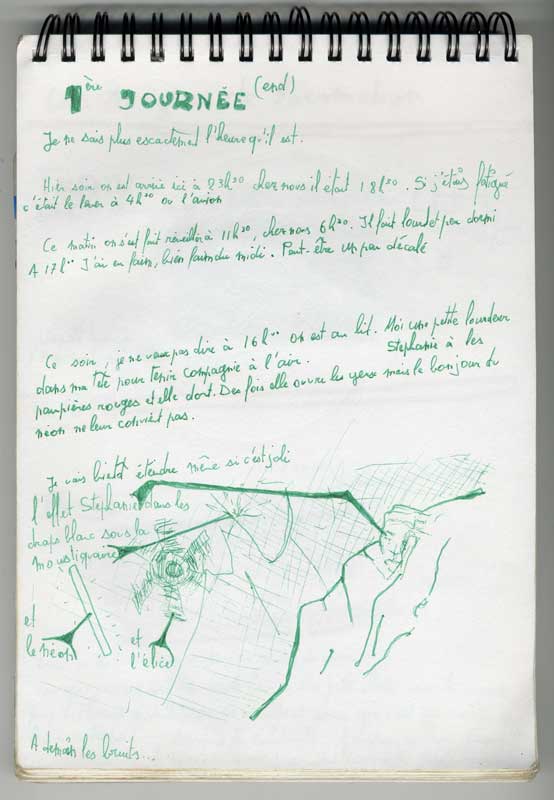 1ère JOURNÉE (end)
Je ne sais plus escactement l'heure qu'il est.
Hier soir on est arrivé ici à 23h30 chez nous il était 18h30. Si j'étais fatigué
c'était le lever à 4h30 ou l'avion
Ce matin on s'est fait réveiller à 11h30, chez nous 6h30. Il fait lourd et peu dormi
A 17h00 J'ai eu faim, bien faim du midi. Peut-être un peu décalé
Ce soir, je ne veux pas dire à 16h00 on est au lit. Moi une petite lourdeur
dans ma tête pour tenir compagnie à l'air. Stephanie à les
paupières rouges et elle dort. Des fois elle ouvre les yeux mais le bonjour du
néon ne leur convient pas.
Je vais bientôt éteindre même si c'est joli
l'effet Stephanie dans les
draps blanc sous la
moustiquaire
et
le néon
et
l'élice
A demain les bruits...